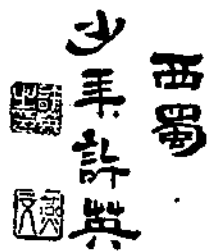 西蜀
少年許英